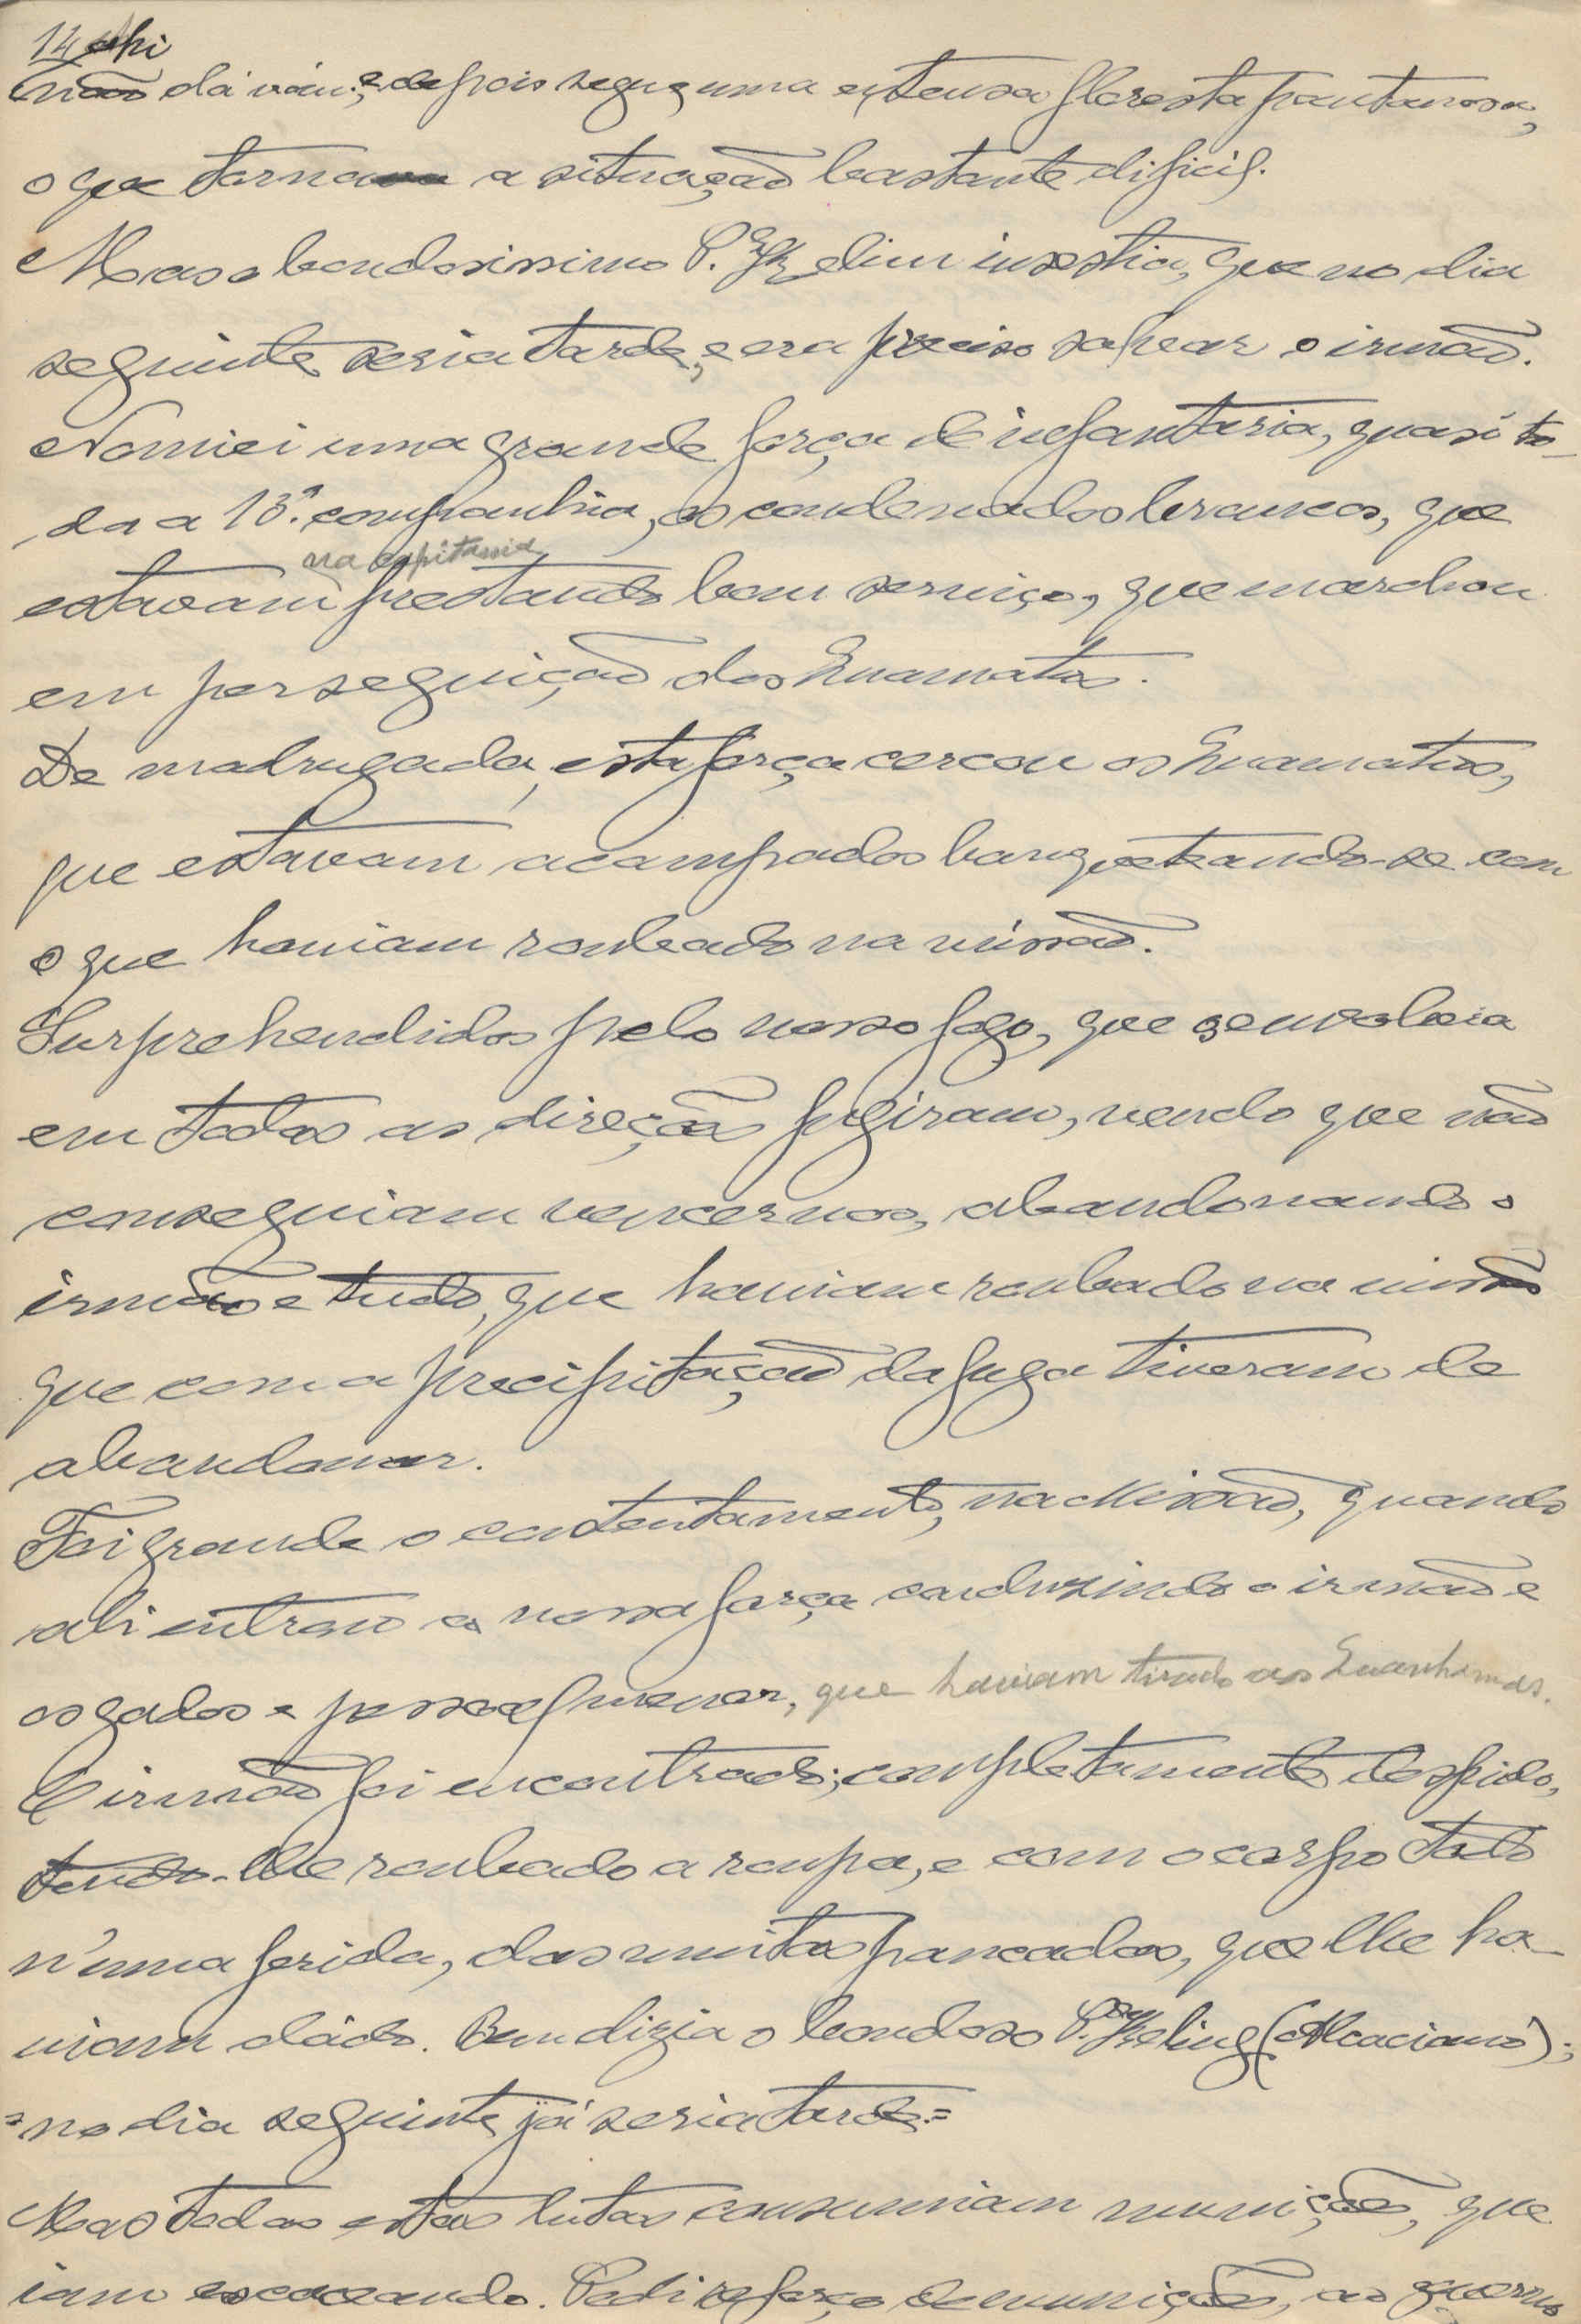 14 ahi
não dá váu; e depois segue, uma extensa floresta pantanosa,
o que torna a situação bastante dificil.
Mas o bondosissimo P. Keelim insestia, que no dia
seguinte seria tarde, e era preciso salvar o irmão.
Nomiei uma grande força de infantaria, quasi to-
da a 13ª. companhia, os condenados brancos, que
na capitania
estavam prestando bom serviço, que marchou
em perseguição dos Cuamatos.
De madrugada, esta força cercou os Cuamatos,
que estavam acampados banqueteando-se com
o que haviam roubado na missão.
Surprehendidos pelo nosso fogo, que os envolvia
em todas as direções fugiram, vendo que não
conseguiam vencernos, abandonando o
irmão e tudo, que haviam roubado na missão
que com a precipitação da fuga tiveram de
abandonar.
Foi grande o contentamento, na Missão, quando
ali entrou a nossa força conduzindo o irmão e
os gados e pessoal menor, que haviam tirado aos Cuanhamas.
O irmão foi encontrado; completamente despido,
tendo-lhe roubado a roupa, e com o corpo todo
n'uma ferida, das muitas pancadas, que lhe ha-
viam dádo. Bem dizia o bondoso P. Keeling (Alsaciano);
=no dia seguinte já seria tarde.=
Mas todas estas lutas consumiam munições, que
iam escaceando. Pedi reforço de munições, ao governo